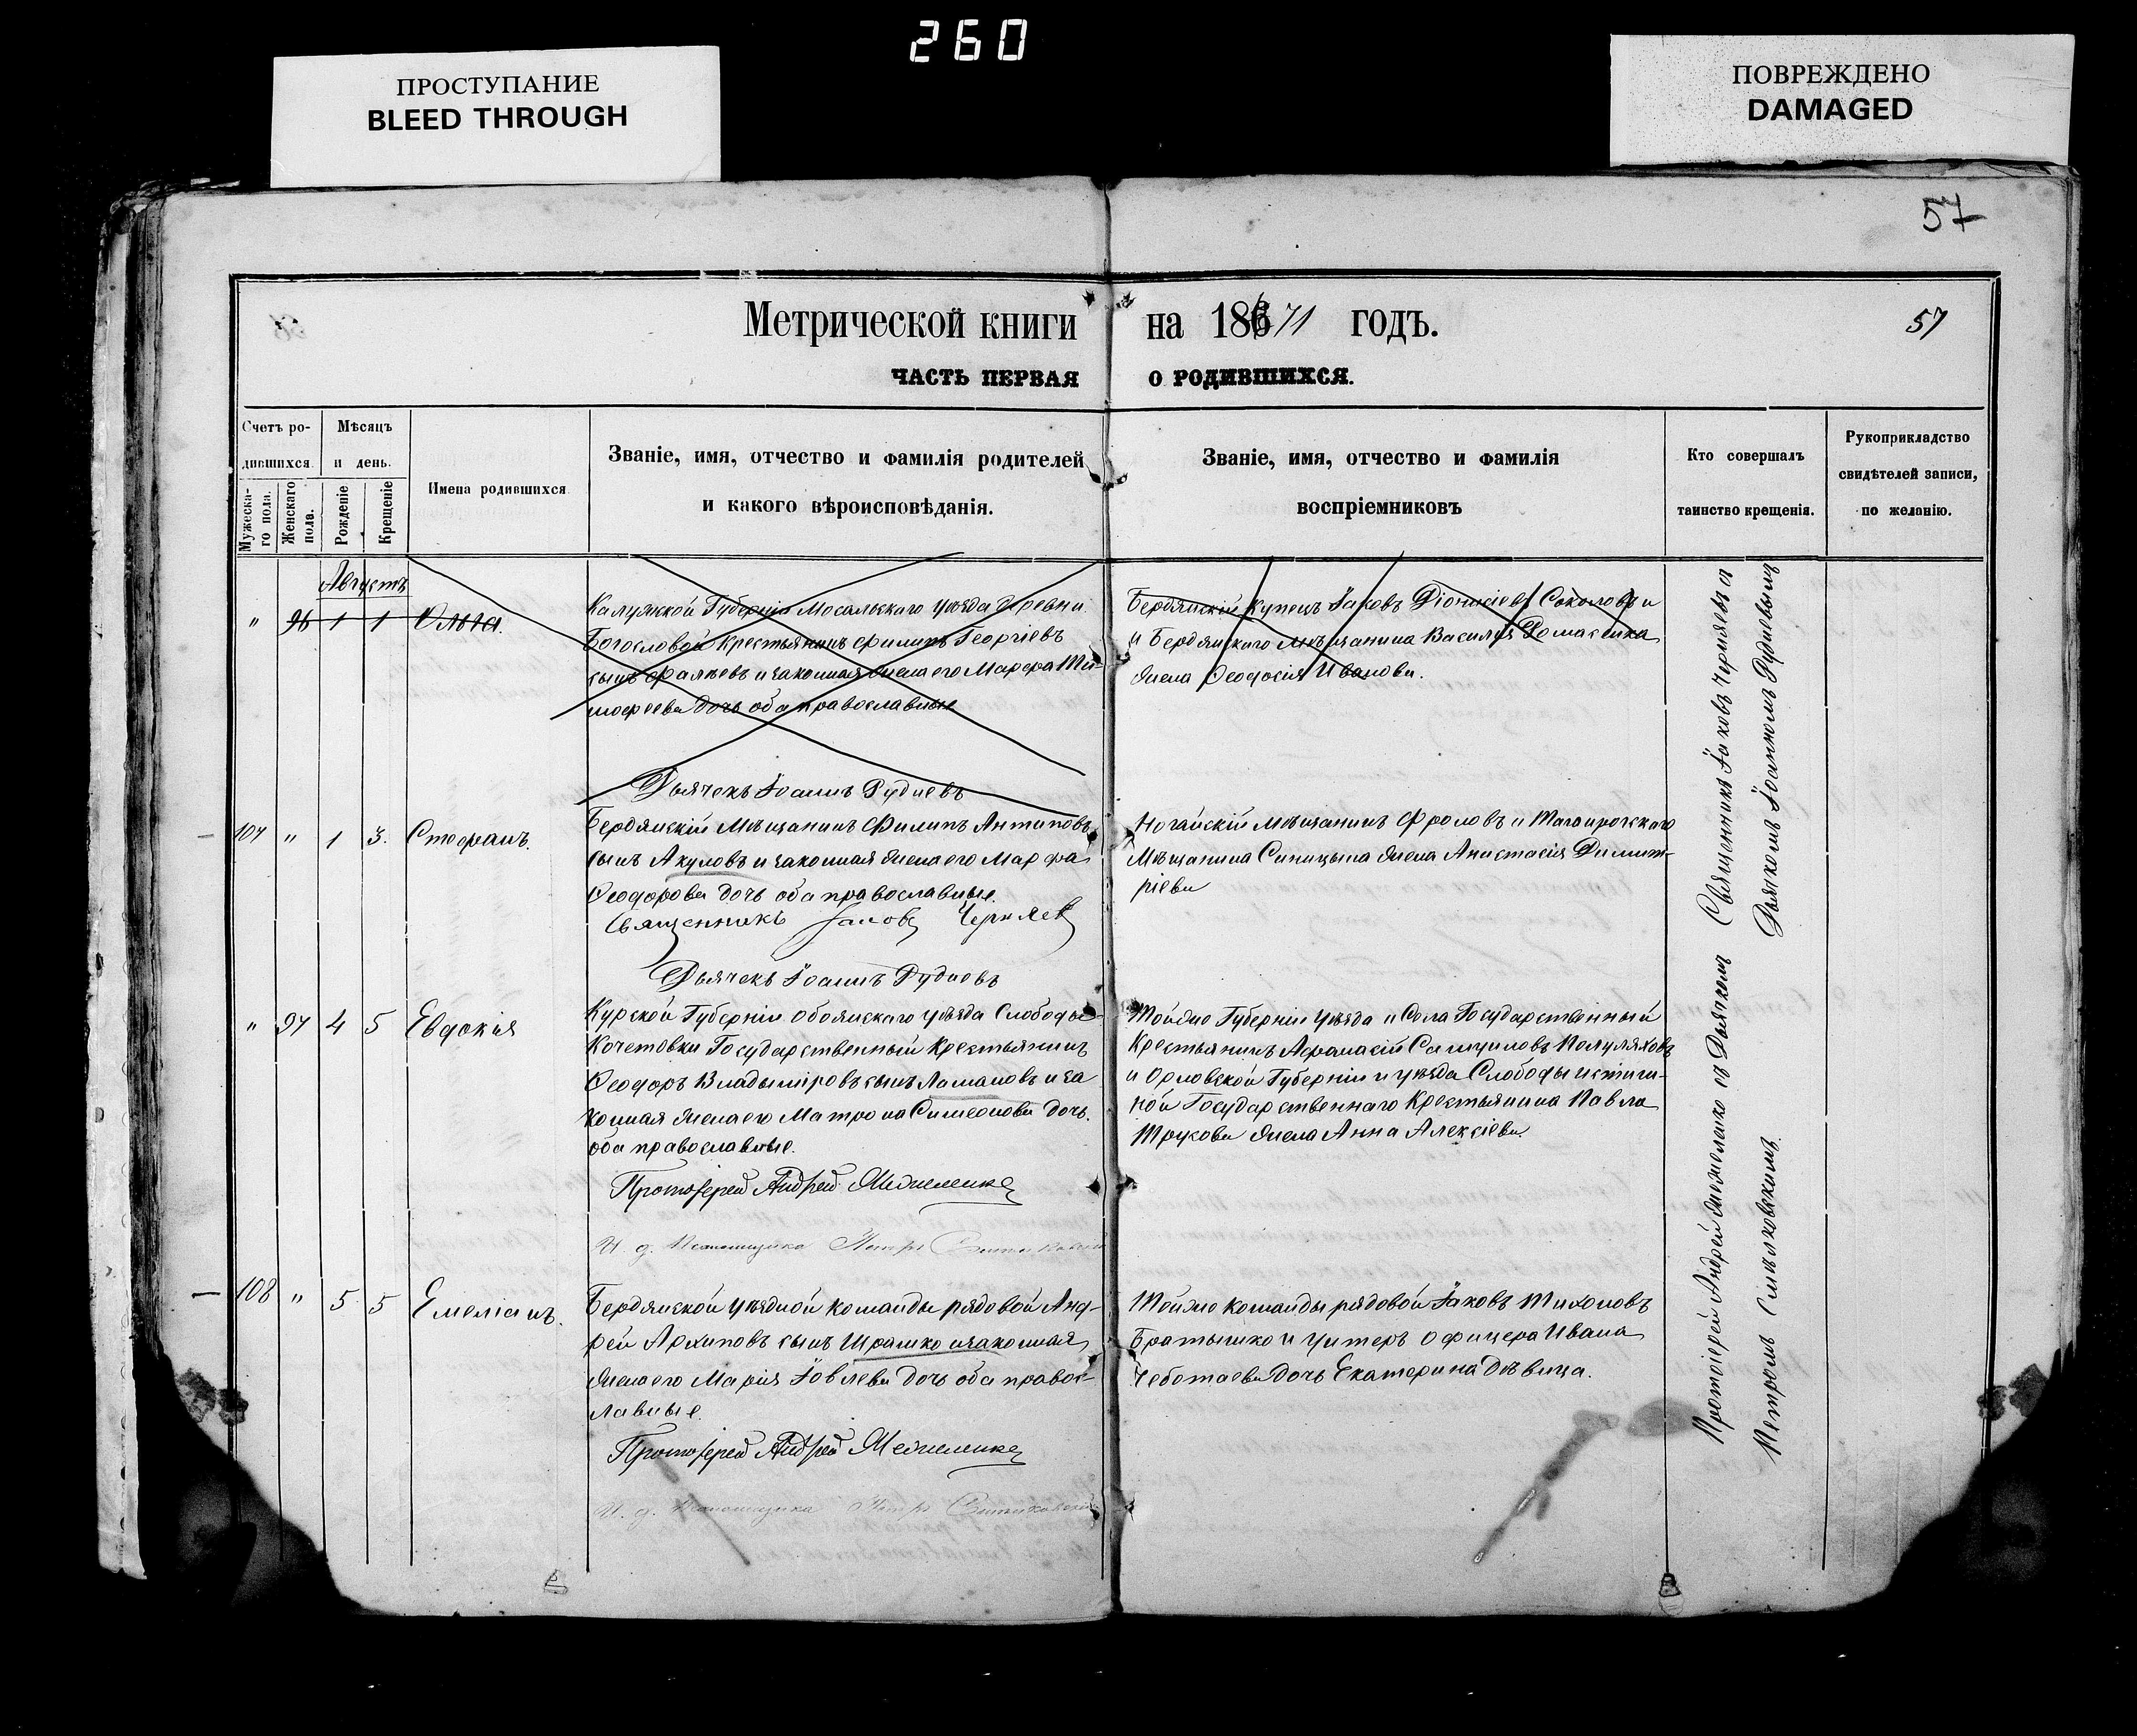 260
ПРОСТУПАНИЕ
BLEED THROUGH
ПОВРЕЖДЕНО
DAMAGED
57
Метрической книги на 18671 годъ.
57
ЧАСТЬ ПЕРВАЯ О РОДИВШИХСЯ.
Счетъ родившихся.
Мужескаго пола.
Женскаго пола.
Мѣсяцъ и день.
Рожденіе
Крещеніе
Имена родившихся
Званіе, имя, отчество и фамилія родителей
и какого вѣроисповѣданія.
Званіе, имя, отчество и фамилія
воспріемниковъ
Кто совершалъ
таинство крещенія.
Рукоприкладство
свидѣтелей записи,
по желанію.
Августъ
" 96 1 1 Ольга.
Калужской Губерніи Мосальскаго уѣзда деревни
Богословой Крестьянинъ Филипъ Георгіевъ
сынъ и законная жена его Марфа Ти-
мофеева дочь оба православные
Бердянскій купецъ Іаковъ Діонисіевъ Соколовъ и
и Бердянскаго мѣщанина Василія Домасенка
жена Феодосія Иванова.
Дьячекъ Іоаннъ Рудневъ
107 " 1 3. Стефанъ.
Бердянскій Мѣщанинъ Филипъ Антиповъ
сынъ Акуловъ и законная жена его Марфа
Феодорова дочь оба православные.
Священникъ Іаковъ Черняев
Дьячекъ Іоаннъ Рудневъ
Ногайскій мѣщанинъ Фроловъ и Таганрогскаго
Мѣщанина Синицына жена Анастасія Димит-
ріева
" 97 4 5 Евдокія
Курской Губерніи Обоянскаго уѣзда Слободы
Кочетовки Государственный Крестьянинъ
Феодоръ Владыміровъ сынъ Ламановъ и за
конная жена его Матрона Симеонова дочь.
оба православные.
Протоіерей Андрей
И. д. Псаломщика Петръ
Тойже Губерніи уѣзда и Села Государственный
Крестьянинъ Афанасій Самуиловъ Полуляховъ
и Орловской Губерніи и уѣзда Слободы
Государственнаго Крестьянина Павла
жена Анна Алексіева.
108 " 5 5 Емеліанъ.
Бердянской уѣздной команды рядовой Анд-
рей Архиповъ сынъ Шрамко и законная
жена его Марія Іовлева дочь оба правос-
лавные.
Протоіерей Андрей
И. д. Псаломщика Петръ
Тойже команды рядовой Іаковъ Тихоновъ
Братышко и унтеръ офицера Ивана
Чеботаева дочь Екатерина Дѣвица.
Священникъ Іаковъ Черняевъ съ
Дьячкомъ Іоанномъ Рудневымъ
Протоіерей Андрей съ Дьячкомъ
Петромъ